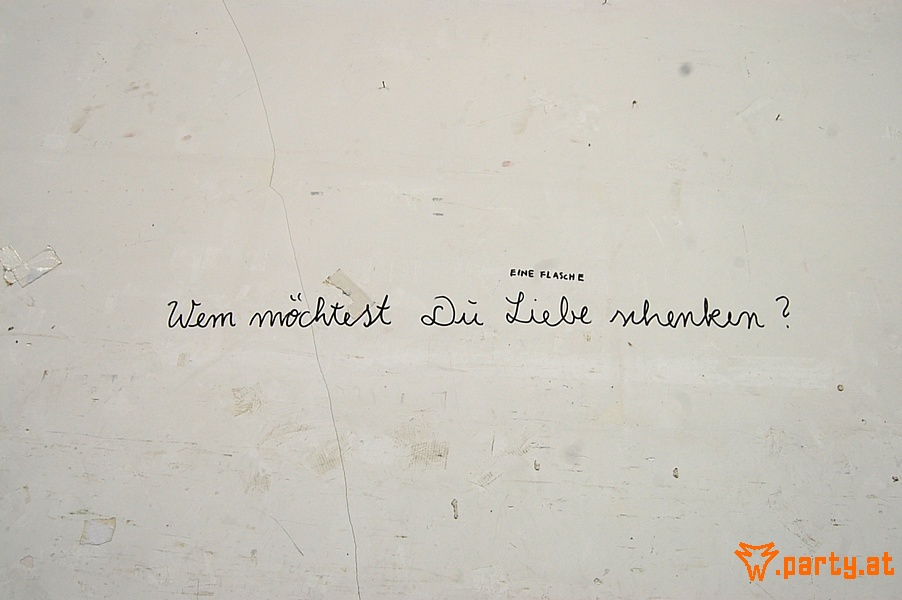 EINE FLASCHE
Wem möchtest Du Liebe schenken?
W.party.at